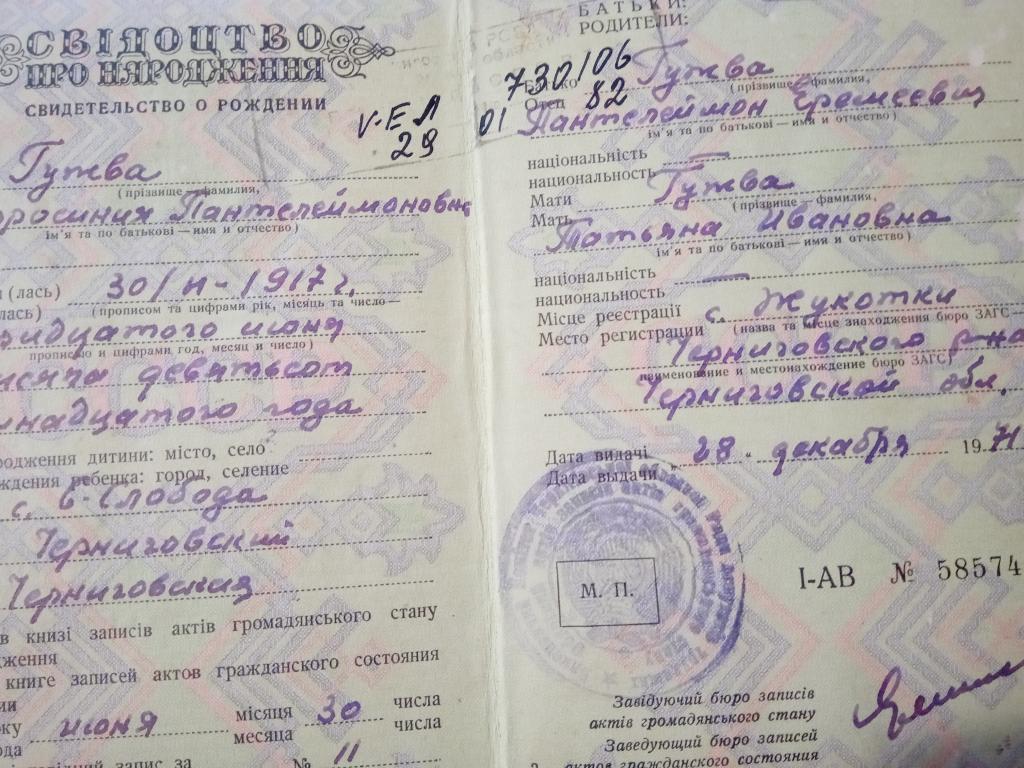 СВІДОЦТВО
ПРО НАРОДЖЕННЯ
СВИДЕТЕЛЬСТВО О РОЖДЕНИИ
V-ЕЛ
29
Гужва
(прізвище — фамилия,
Пантелеймоновна
ім'я та по батькові — имя и отчество)
(лась)
лась)
30/VI-1917 г.
(прописом та цифрами рік, місяць та число —
ридцатого июня
прописью и цифрами год, месяц и число)
исяча девятьсот
надцатого года
родження дитини: місто, село
ждения ребенка: город, селение
с. Слобода
Черниговский
Черниговская
в книзі записів актів громадянського стану
дження
книге записей актов гражданского состояния
июня
місяця
месяца
30
числа
числа
запис за
№ 11
БАТЬКИ:
РОДИТЕЛИ:
730/06
01 82
Отец
Гужва
(прізвище — фамилия,
Пантелеймон Еремеевич
ім'я та по батькові — имя и отчество)
національність —
национальность
Мати
Мать
Гужва
(прізвище — фамилия,
Татьяна Ивановна
ім'я та по батькові — имя и отчество)
національність —
национальность
Місце реєстрації
Место регистрации
с. Жукотки
(назва та місце знаходження бюро ЗАГС —
Черниговского р-на
наименование и местонахождение бюро ЗАГС)
Черниговской обл.
Дата видачі
Дата выдачи
„ 28 „ декабря 1971
М. П.
I-АВ № 58574
Завідуючий бюро записів
актів громадянського стану
Заведующий бюро записей
актов гражданского состояния